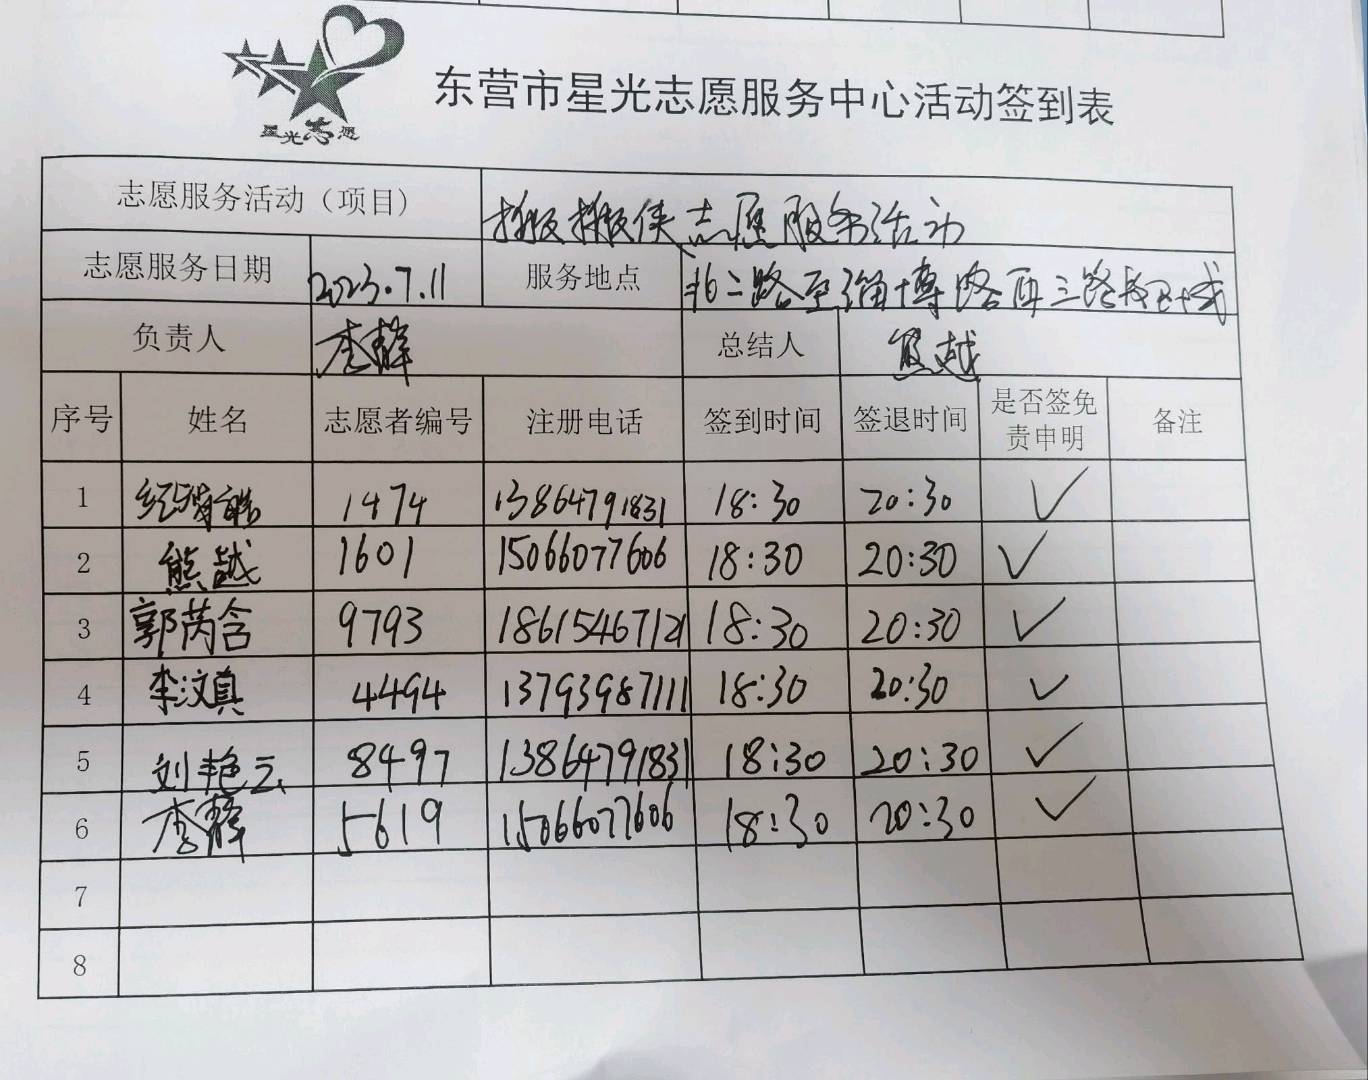 星光志愿
东营市星光志愿服务中心活动签到表
志愿服务活动（项目） 搬搬侠志愿服务活动
志愿服务日期 2023.7.11 服务地点 北二路至淄博路西三路
负责人 李静 总结人 熊越
序号 姓名 志愿者编号 注册电话 签到时间 签退时间 是否签免责申明 备注
1 1474 13864791831 18:30 20:30 ✓
2 熊越 1601 15066077606 18:30 20:30 ✓
3 郭芮含 9793 18615467121 18:30 20:30 ✓
4 李汶真 4494 13793987111 18:30 20:30 ✓
5 刘艳云 8497 13864791831 18:30 20:30 ✓
6 李静 5619 15066077606 18:30 20:30 ✓
7
8